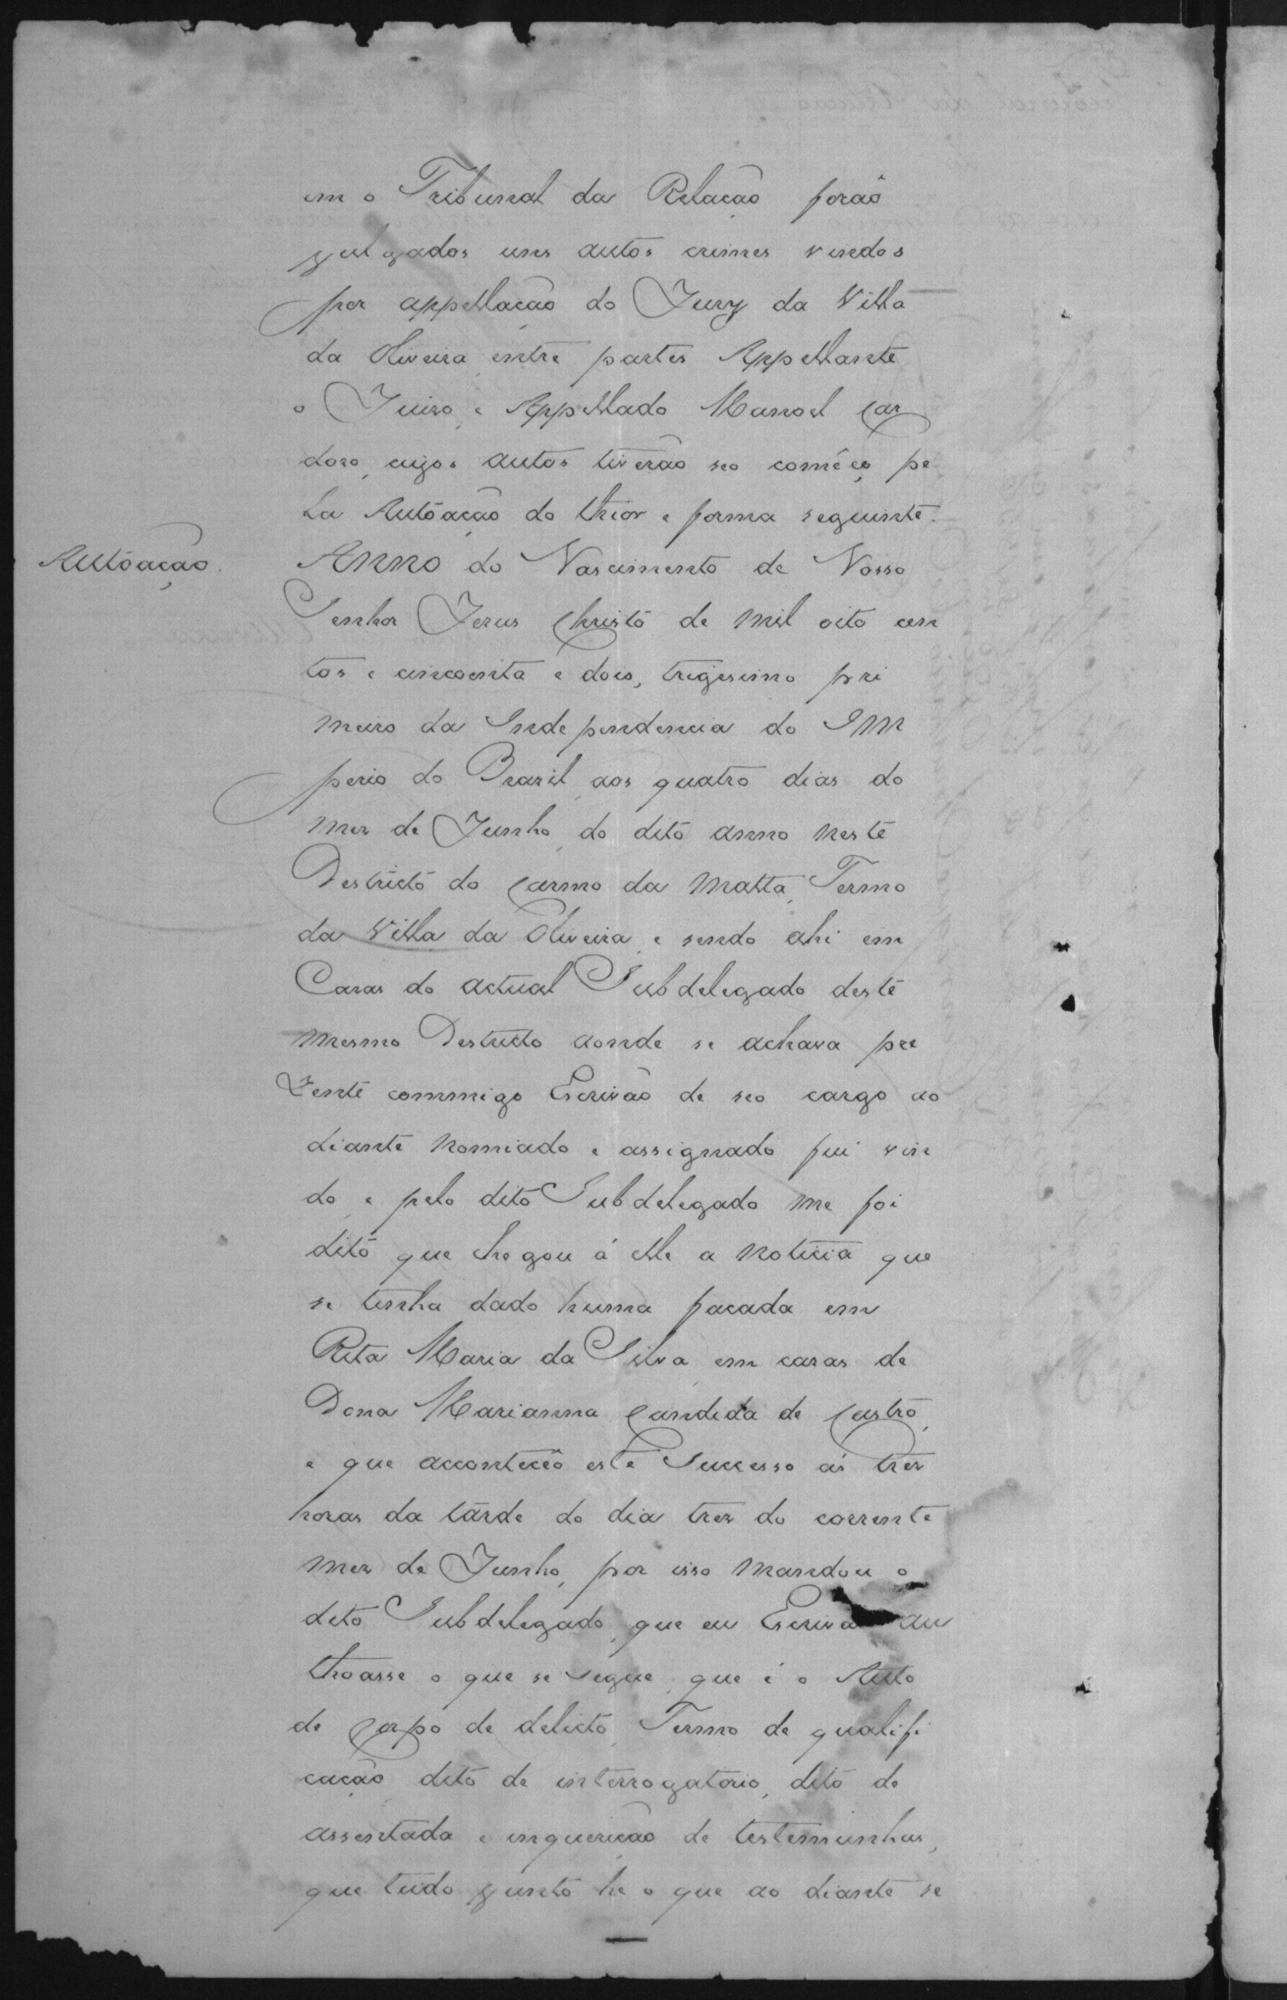 em o Tribunal da Relação forão
julgados uns autos crimes vindos
por appellação do Jury da Villa
da Oliveira, entre partes Appellante
o Juizo, e Appellado Manoel Car
dozo, cujos autos tiverão seo começo pe
la Autôação do theor e forma seguinte.
Autôação. Anno do Nascimento de Nosso
Senhor Jezus Christo de mil oito cen
tos e cincoenta e dois, trigesimo pri
meiro da Independencia do Im
perio do Brazil, aos quatro dias do
mez de Junho, do dito anno neste
Destricto do Carmo da Matta, Termo
da Villa da Oliveira, e sendo ahi em
Cazas do actual Subdelegado deste
mesmo Destricto aonde se achava pre
zente commigo Escrivão de seo cargo ao
diante nomiado e assignado fui vin
do, e pelo dito Subdelegado me foi
dito que chegou á elle a noticia que
se tinha dado huma facada em
Rita Maria da Silva, em cazas de
Dona Marianna Candida de Castro,
e que acconteceo este Successo ás trez
horas da tarde do dia trez do corrente
mez de Junho, por isso mandou o
dito Subdelegado, que eu Escrivão au
thoasse o que se segue, que é o Auto
de Corpo de delicto, Termo de qualifi
cação, dito de interrogatorio, dito de
assentada e inquerição de testemunhas,
que tudo junto he o que ao diante se